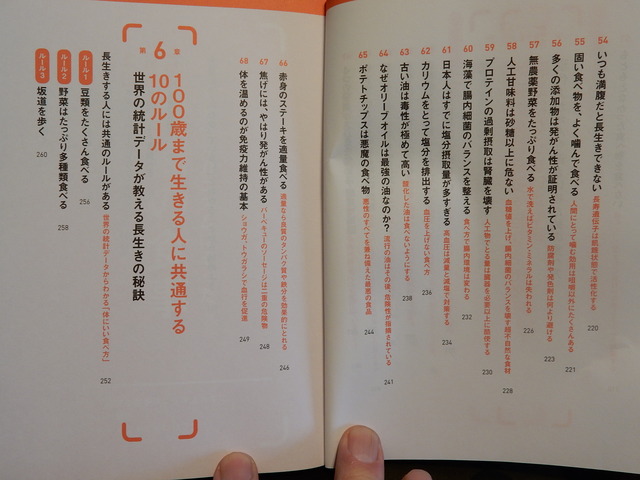 54 いつも満腹だと長生きできない 長寿遺伝子は飢餓状態で活性化する 220
55 固い食べ物を、よく噛んで食べる 人間にとって噛む効用は咀嚼以外にたくさんある 221
56 多くの添加物は発がん性が証明されている 防腐剤や発色剤は何より避ける 223
57 無農薬野菜をたっぷり食べる 水で洗えばビタミンミネラルは失われる 226
58 人工甘味料は砂糖以上に危ない 血糖値を上げ、腸内細菌のバランスを壊す超不自然な食材 228
59 プロテインの過剰摂取は腎臓を壊す 人工物でとる量は臓器を必要以上に酷使する 230
60 海藻で腸内細菌のバランスを整える 食べ方で腸内環境は変わる 232
61 日本人はすでに塩分摂取量が多すぎる 高血圧は減量と減塩で対策する 234
62 カリウムをとって塩分を排出する 血圧を上げない食べ方 236
63 古い油は毒性が極めて高い 酸化した油は食べないようにする 238
64 なぜオリーブオイルは最強の油なのか? 流行の油はその後、危険性が指摘されている 241
65 ポテトチップスは悪魔の食べ物 悪性のすべてを兼ね備えた最悪の食品 244
66 赤身のステーキを適量食べる 適量なら良質のタンパク質や鉄分を効果的にとれる 246
67 焦げには、やはり発がん性がある バーベキューのソーセージは二重の危険物 248
68 体を温めるのが免疫力維持の基本 ショウガ、トウガラシで血行を促進 249
第6章
100歳まで生きる人に共通する
10のルール
世界の統計データが教える長生きの秘訣
長生きする人には共通のルールがある 世界の統計データからわかる「体にいい食べ方」 252
ルール1 豆類をたくさん食べる 256
ルール2 野菜はたっぷり多種類食べる 258
ルール3 坂道を歩く 260